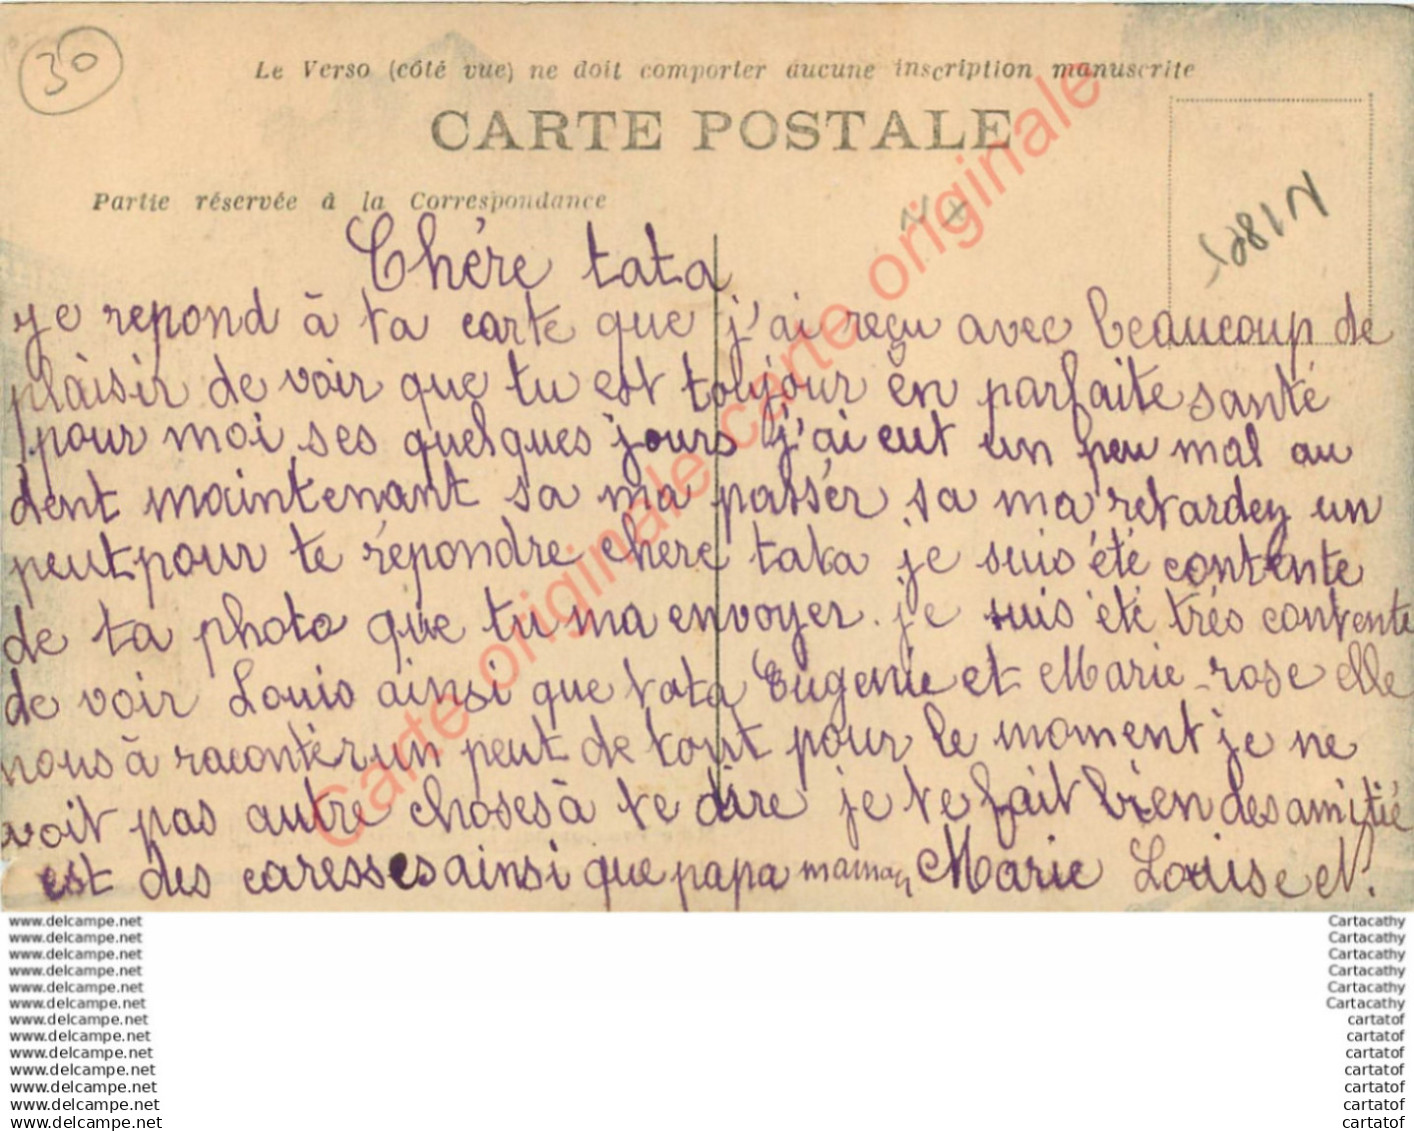 30
Le Verso (côté vue) ne doit comporter aucune inscription manuscrite
CARTE POSTALE
Partie réservée à la Correspondance
N X
Chère tata
je repond à ta carte que j'ai reçu avec beaucoup de
plaisir de voir que tu est toujour en parfaite santé
pour moi ses quelques jours j'ai eut un peu mal au
dent maintenant sa ma passér, sa ma retardez un
peut pour te répondre chere tata je suis été contente
de ta photo que tu ma envoyer. je suis été très contente
de voir Louis ainsi que tata Eugenie et Marie-rose elle
nous à racontér un peut de tout pour le moment je ne
voit pas autre choses à te dire je te fait bien des amitié
est des caresses ainsi que papa maman Marie Louise et.
Carte originale carte originale
www.delcampe.net Cartacathy
www.delcampe.net Cartacathy
www.delcampe.net Cartacathy
www.delcampe.net Cartacathy
www.delcampe.net Cartacathy
www.delcampe.net Cartacathy
www.delcampe.net cartatof
www.delcampe.net cartatof
www.delcampe.net cartatof
www.delcampe.net cartatof
www.delcampe.net cartatof
www.delcampe.net cartatof
www.delcampe.net cartatof